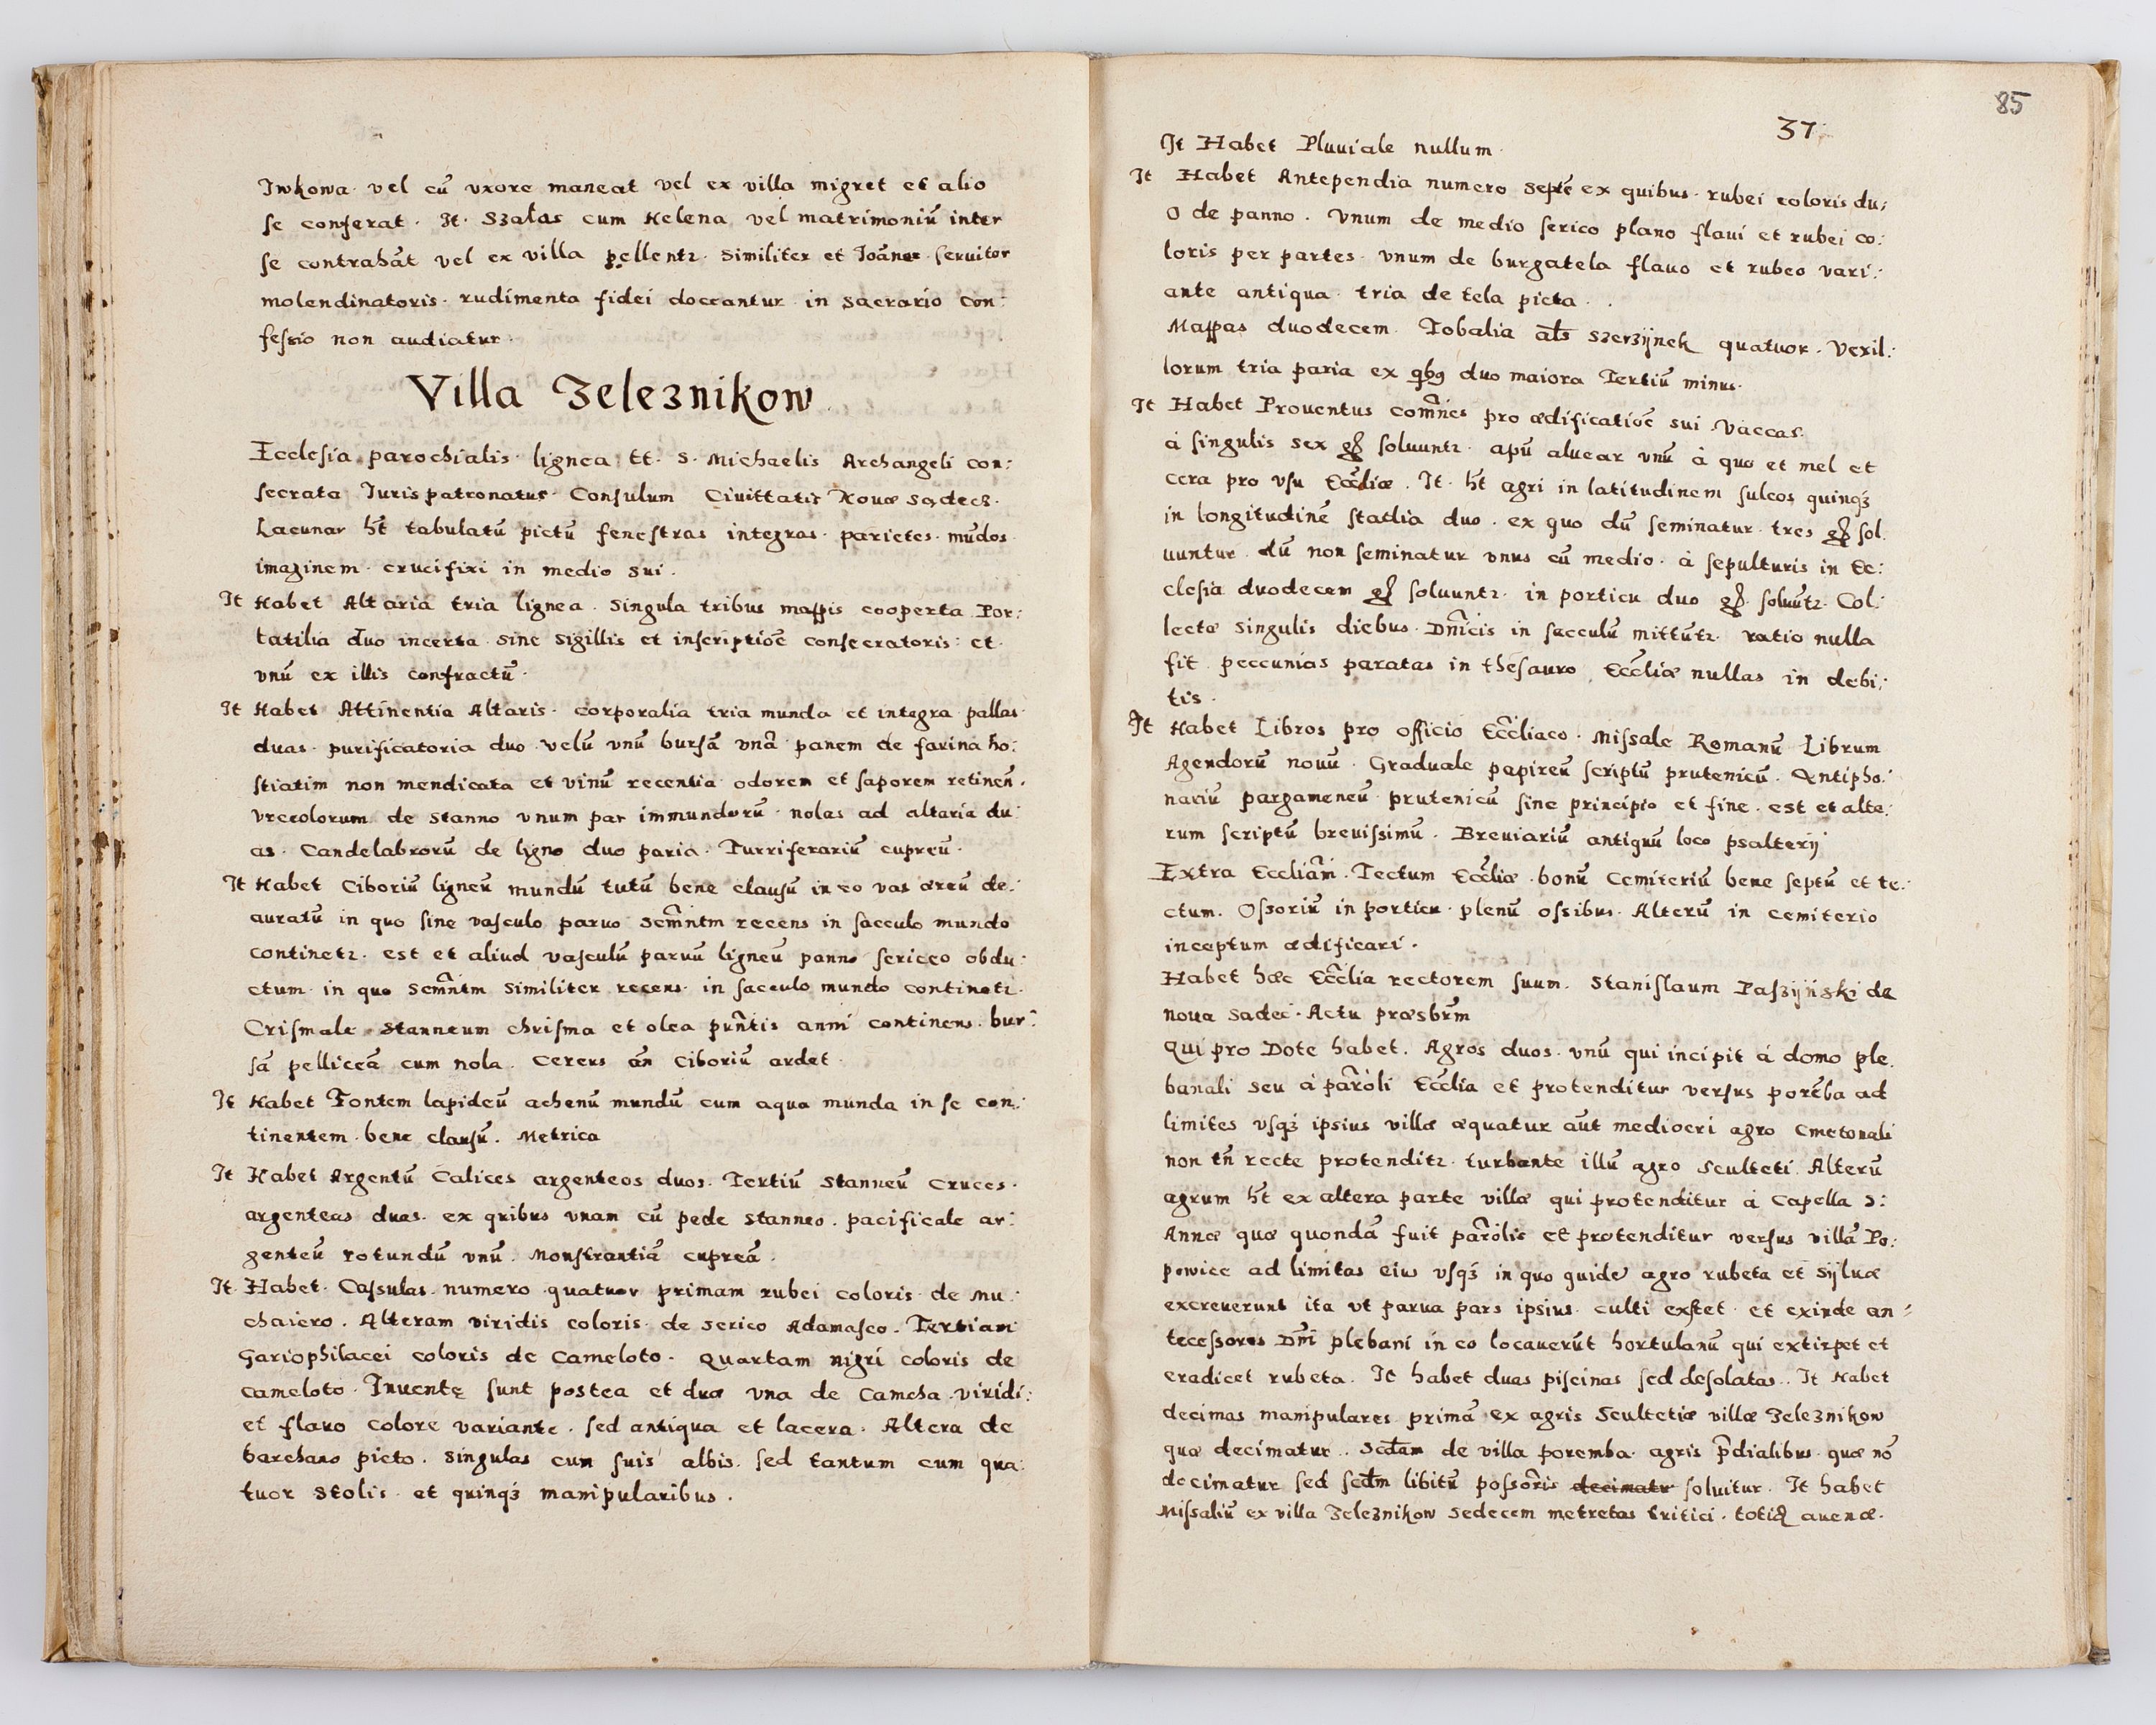 Iwkowa vel cū vxore maneat vel ex villa migret et alio
se conferat. It. Szalas cum Helena vel matrimoniū inter
se contrahāt vel ex villa pellentr. Similiter et Ioānes seruitor
molendinatoris rudimenta fidei doceantur in sacrario Con:
fessio non audiatur.
Villa Zeleznikow
Ecclesia parochialis lignea tt. S. Michaelis Archangeli con:
secrata Iuris patronatus Consulum Ciuittatis Nouæ Sądecz.
Lacunar ht̄ tabulatū pictū fenestras integras parietes mūdos
imaginem crucifixi in medio sui.
It Habet Altaria tria lignea. Singula tribus mappis cooperta Por:
tatilia duo incerta sine sigillis et inscriptiōe consecratoris et
vnū ex illis confractū.
It Habet Attinentia Altaris. corporalia tria munda et integra pallas
duas purificatoria duo velū vnū bursā vnā panem de farina ho:
stiatim non mendicata et vinū recentia odorem et saporem retineñ.
vrceolorum de stanno vnum par immundorū nolas ad altaria du:
as. Candelabrorū de ligno duo paria. Turriferariū cupreū.
It Habet Ciboriū ligneū mundū tutū bene clausū in eo vas æreū de:
auratū in quo sine vasculo paruo Scm̄ntm recens in sacculo mundo
continetr. est et aliud vasculū paruū ligneū panno sericeo obdu:
ctum in quo Scm̄ntm similiter recens in sacculo mundo continetr.
Crismale stanneum chrisma et olea pūntis anni continens. bur:
sā pelliceā cum nola. Cereus āñ Ciboriū ardet.
It Habet Fontem lapideū ahenū mundū cum aqua munda in se con:
tinentem bene clausū. Metrica
It Habet Argentū Calices argenteos duos. Tertiū Stanneū Cruces
argenteas duas ex quibus vnam cū pede stanneo. pacificale ar:
genteū rotundū vnū. Monstrantiā cupreā.
It Habet. Casulas numero quatuor primam rubei coloris de mu:
chaiero. Alteram viridis coloris de serico Adamasco. Tertiam
Gariophilacei coloris de Cameloto. Quartam nigri coloris de
cameloto. Inuentę sunt postea et duæ vna de Camcha viridi:
et flauo colore variante. sed antiqua et lacera. Altera de
barchano picto. Singulas cum suis albis. sed tantum cum qua:
tuor stolis et quinqz manipularibus.
85
37
It Habet Pluuiale nullum.
It Habet Antependia numero septē ex quibus rubei coloris du:
o de panno. vnum de medio serico plano flaui et rubei co:
loris per partes vnum de burgatela flauo et rubeo vari:
ante antiqua tria de tela picta.
Mappas duodecem. Tobalia als̄ Szerzÿnek quatuor. Vexil:
lorum tria paria ex qbq duo maiora Tertiū minus.
It Habet Prouentus com̄nes pro ædificatiōe sui. Vaccas
à singulis sex gs soluuntr. apū aluear vnū à quo et mel et
cera pro vsu Eccliæ. It. ht̄ agri in latitudinem sulcos quinqz
in longitudinē stadia duo. ex quo dū seminatur tres gs sol
uuntur. dū non seminatur vnus cū medio. à sepulturis in Ec:
clesia duodecem gs soluuntr. in porticu duo gs. soluūtr. Col:
lectæ singulis diebus Dn̄icis in sacculū mittūtr. ratio nulla
fit peccunias paratas in thesauro Eccliæ nullas in debi:
tis.
It Habet Libros pro officio Eccliaco. Missale Romanū Librum
Agendorū nouū. Graduale papireū scriptū prutenicū. Antipho:
nariū pargameneū prutenicū sine principio et fine. est et alte:
rum scriptū breuissimū. Breuiariū antiquū loco psalterij
Extra Eccliam̄. Tectum Eccliæ bonū Cemiteriū bene septū et te:
ctum. Ossoriū in porticu plenū ossibus. Alterū in cemiterio
inceptum ædificari.
Habet hæc Ecclia rectorem suum. Stanislaum Paszÿński de
noua Sadec. Actu præsbrm̄
Qui pro Dote habet. Agros duos. vnū qui incipit à domo ple
banali seu à parōli Ecclia et protenditur versus porēba ad
limites vsqz ipsius villæ æquatur aūt mediocri agro Cmetonali
non tñ recte protenditr. turbante illū agro sculteti. Alterū
agrum ht̄ ex altera parte villæ qui protenditur à Capella S:
Annæ quæ quondā fuit parōlis et protenditur versus villā Po:
powice ad limitas eius vsqz in quo quidē agro rubeta et sÿluæ
excreuerunt ita vt parua pars ipsius culti exstet et exinde an:
tecessores Dn̄i plebani in eo locauerūt hortulanū qui extirpet et
eradicet rubeta. It habet duas piscinas sed desolatas. It Habet
decimas manipulares primā ex agris Scultetiæ villæ Zeleznikow
quæ decimatur. Scdam de villa poremba agris p̄dialibus quæ nō
decimatur sed scdm libitū possōris decimatr soluitur. It habet
Missaliū ex villa Zeleznikow sedecem metretas tritici. totiq auenæ.